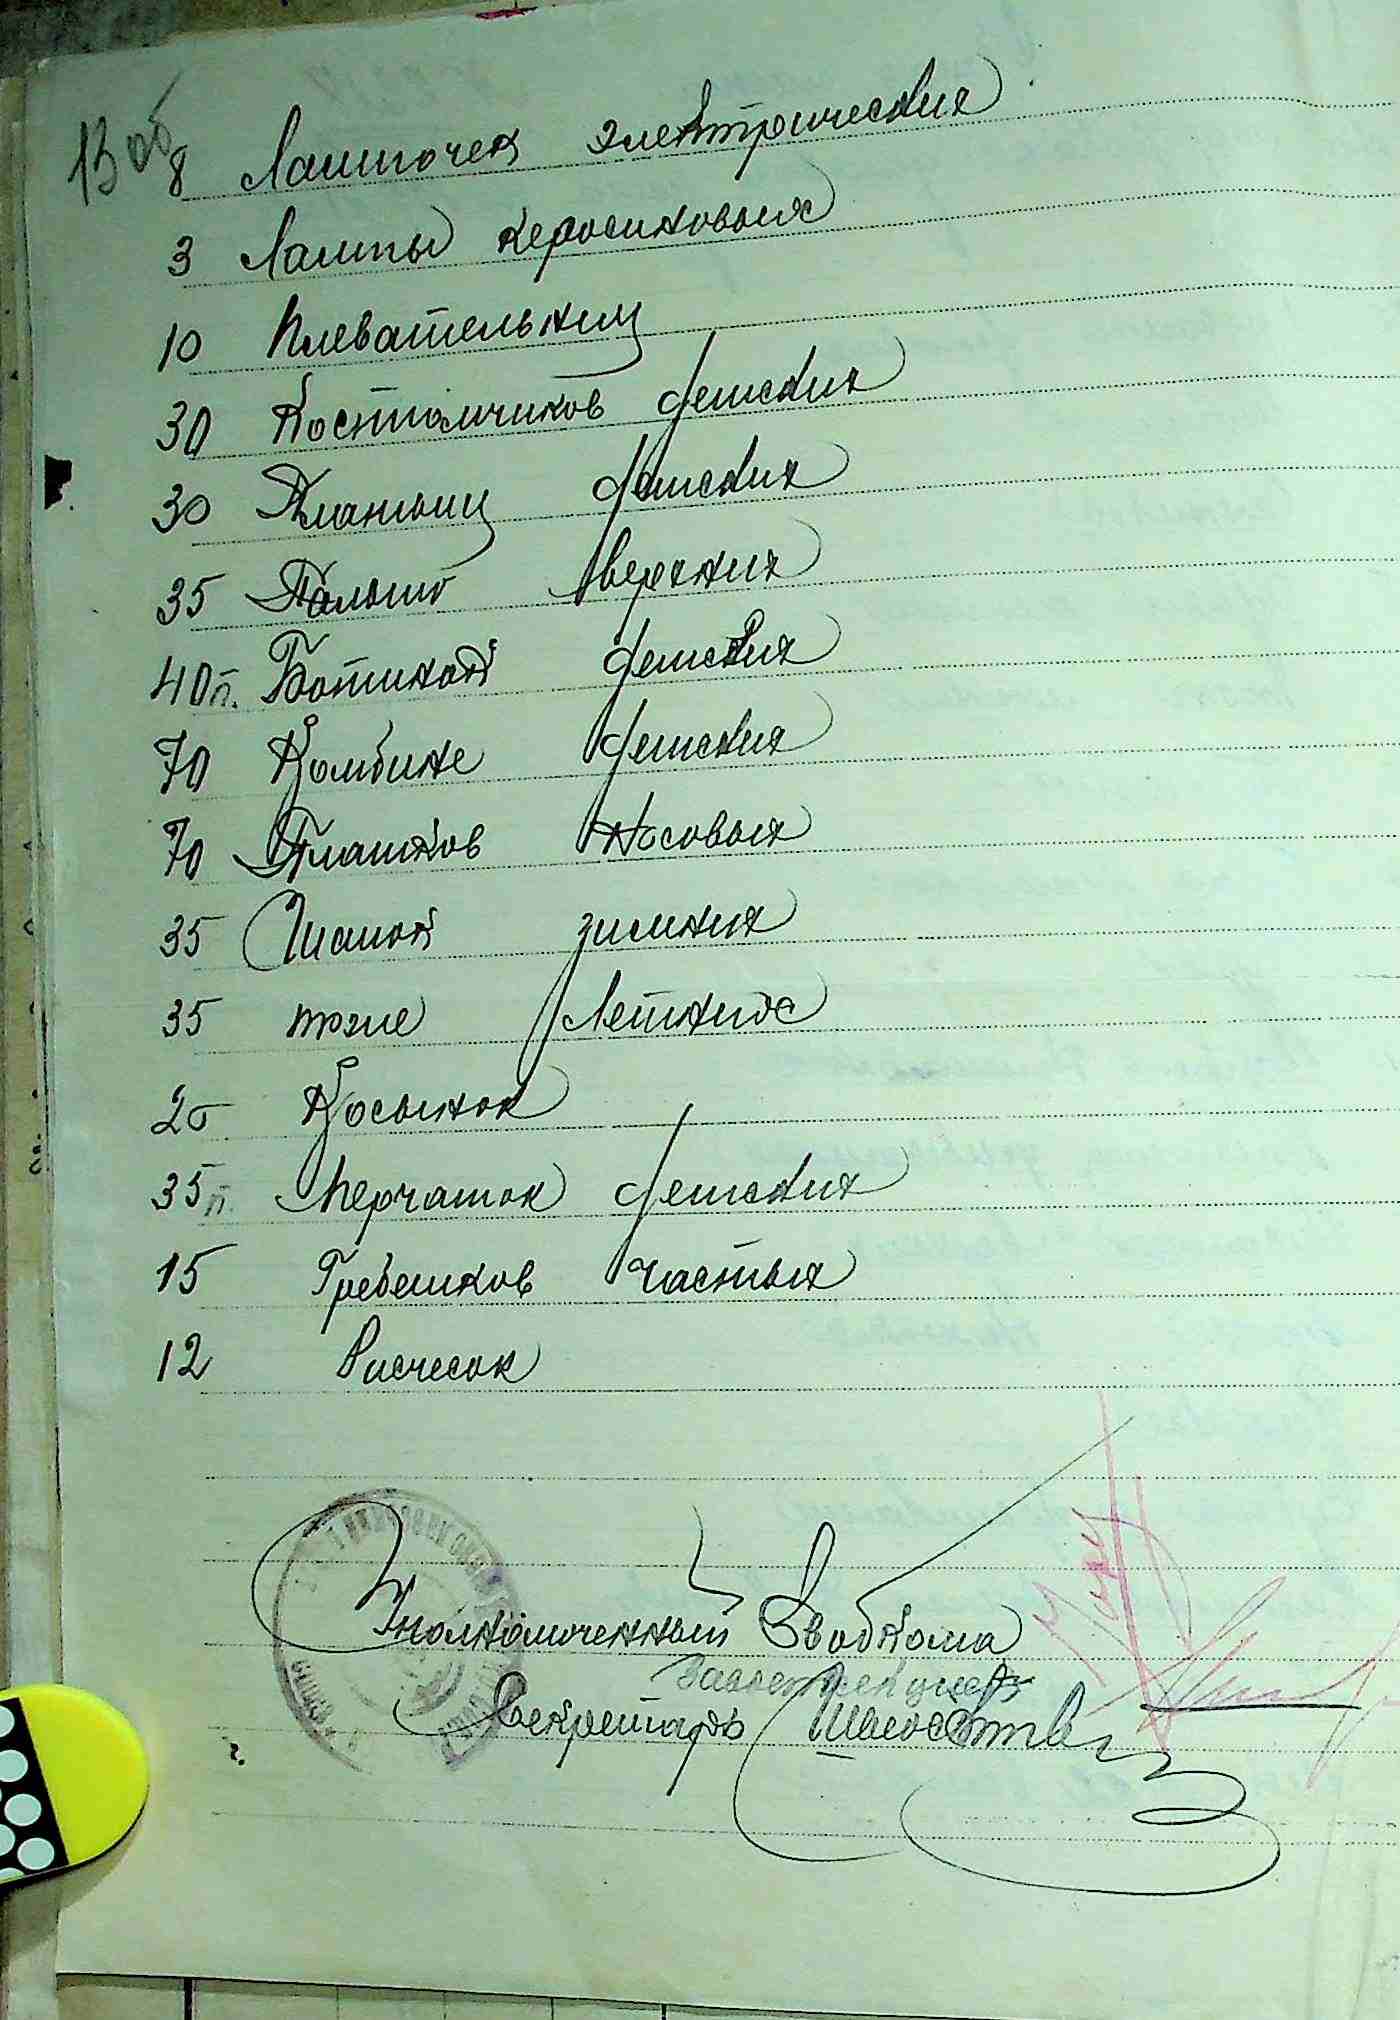 13 об
8 Лампочек электрических
3 Лампы керосиновых
10 Плевательниц
30 Костюмчиков детских
30 Платьиц детских
35 Пальто верхних
40 п. Ботинок детских
70 Комбине детских
70 Платков носовых
35 Шапок зимних
35 тоже Летних
20 Косынок
35 п. Перчаток детских
15 Гребешков частых
12 Расчесок
Уполномоченный
Секретарь